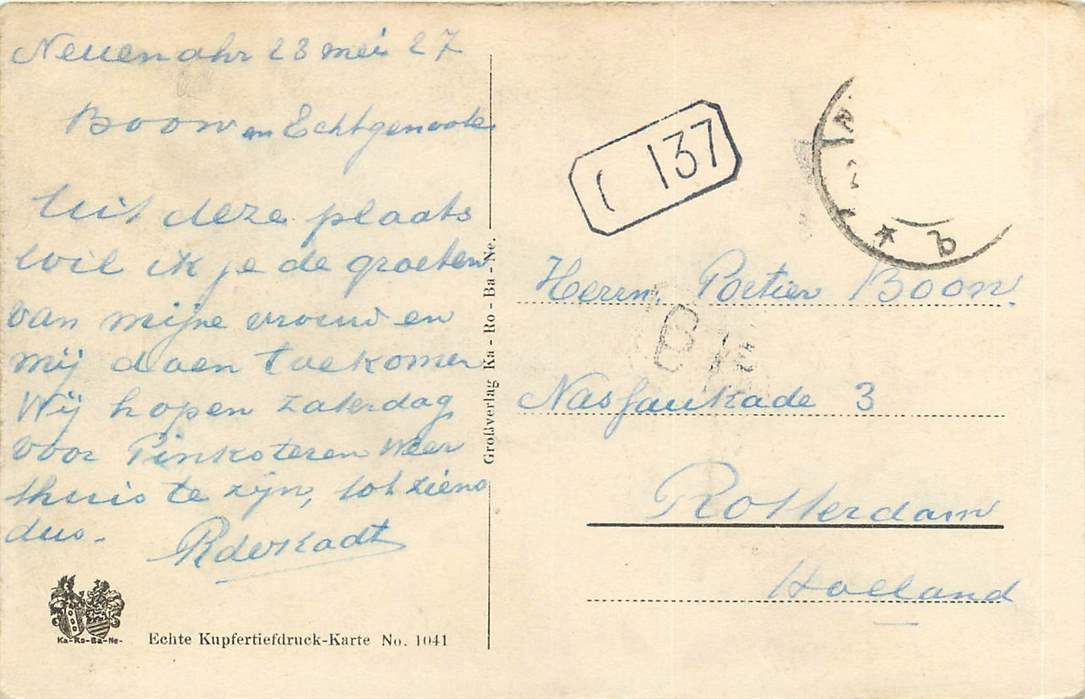 Neuenahr 23 mei 27
Boon en Echtgenoote
Uit deze plaats
wil ik je de groeten
van mijne vrouw en
mij doen toekomen
Wij hopen zaterdag
voor Pinksteren weer
thuis te zijn, tot ziens
dus.
Echte Kupfertiefdruck-Karte No. 1041
Ka-Ro-Ba-Ne-
Großverlag Ka-Ro-Ba-Ne.
137
Herrn. Portier Boon.
Nassaukade 3
Rotterdam
Holland